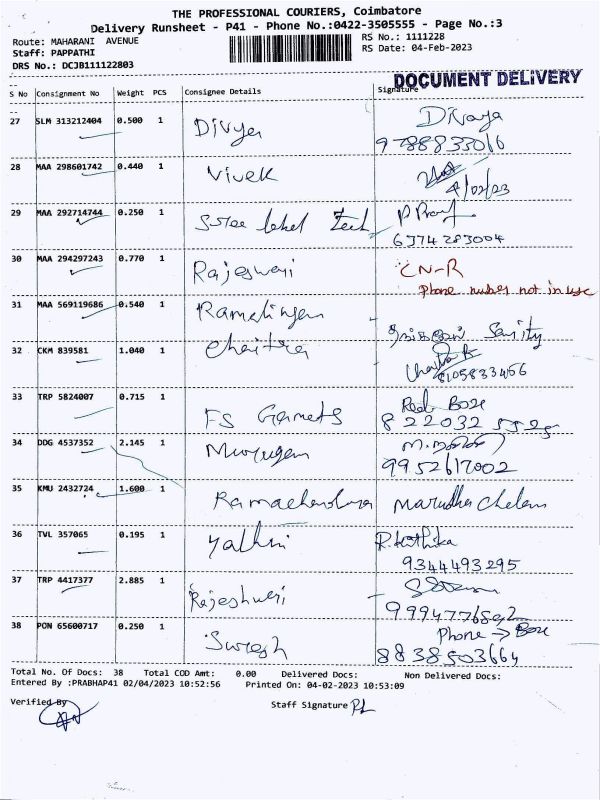 THE PROFESSIONAL COURIERS, Coimbatore
Delivery Runsheet - P41 - Phone No.:0422-3505555 - Page No.:3
Route: MAHARANI AVENUE
RS No.: 1111228
Staff: PAPPATHI
RS Date: 04-Feb-2023
DRS No.: DCJB111122803
DOCUMENT DELIVERY
S No Consignment No Weight PCS Consignee Details Signature
27 SLM 313212404 0.500 1 Divya Divaya
9788833016
28 MAA 298601742 0.440 1 Vivek
4/02/23
29 MAA 292714744 0.250 1 Sree label Tech
6374283004
30 MAA 294297243 0.770 1 Rajeswari CN-R
Phone number not in use
31 MAA 569119686 0.540 1 Ramalingam
32 CKM 839581 1.040 1 Chaitra
33 TRP 5824007 0.715 1 FS Garments Red Box
8 22032 5525
34 DDG 4537352 2.145 1 Murugan
9952617002
35 KMU 2432724 1.600 1 Ramachandura Marudha Chelam
36 TVL 357065 0.195 1 Yalhni R.Karthika
9344493295
37 TRP 4417377 2.885 1 Rajeshwari
38 PON 65600717 0.250 1 Suresh Phone → Box
8838503664
Total No. Of Docs: 38 Total COD Amt: 0.00 Delivered Docs: Non Delivered Docs:
Entered By :PRABHAP41 02/04/2023 10:52:56 Printed On: 04-02-2023 10:53:09
Verified By
Staff Signature